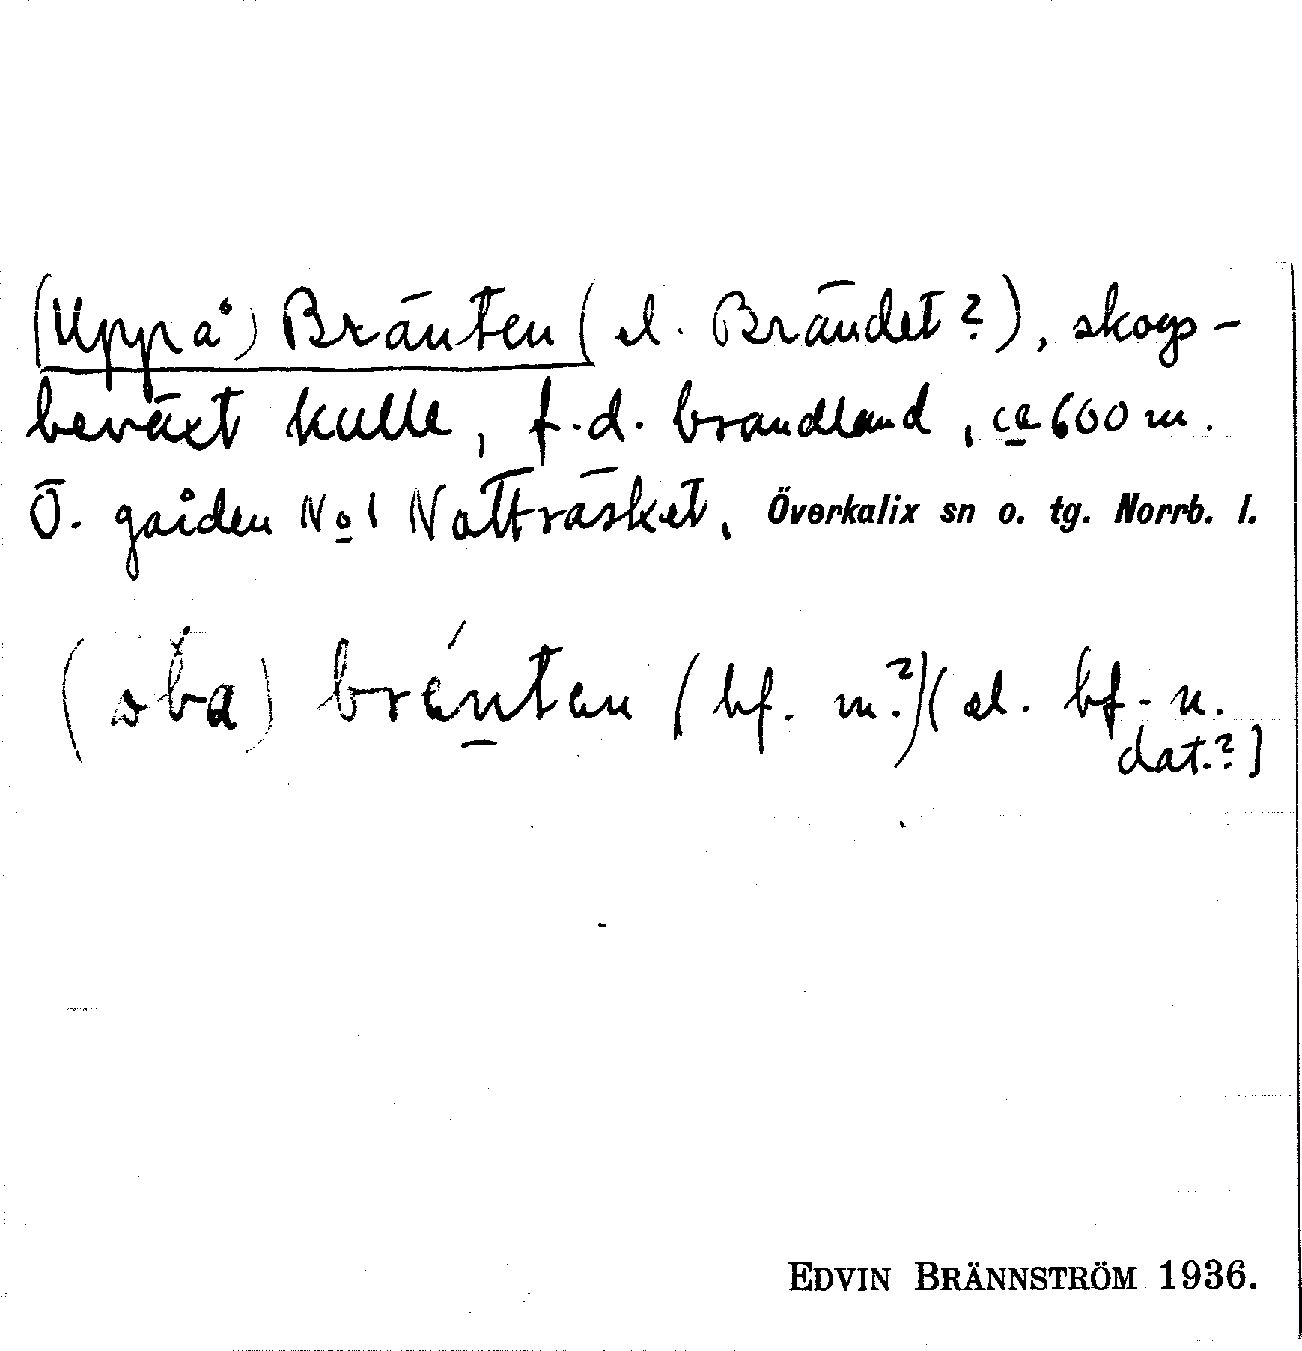 (Uppå) Bränten (el. Brändet?), skogs-
beväxt kulle, f.d. brandland, ca 600 m.
Ö. gården No 1 Nattträsket, Överkalix sn o. tg. Norrb. l.
(oba) brénten (bf. m.?) (el. bf. n.
dat.?)
EDVIN BRÄNNSTRÖM 1936.